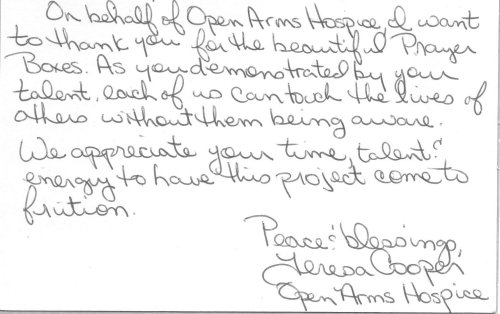 On behalf of Open Arms Hospice, I want
to thank you for the beautiful Prayer
Boxes. As you demonstrated by your
talent, each of us can touch the lives of
others without them being aware.
We appreciate your time, talent &
energy to have this project come to
frution.
Peace & blessings,
Teresa Cooper
Open Arms Hospice